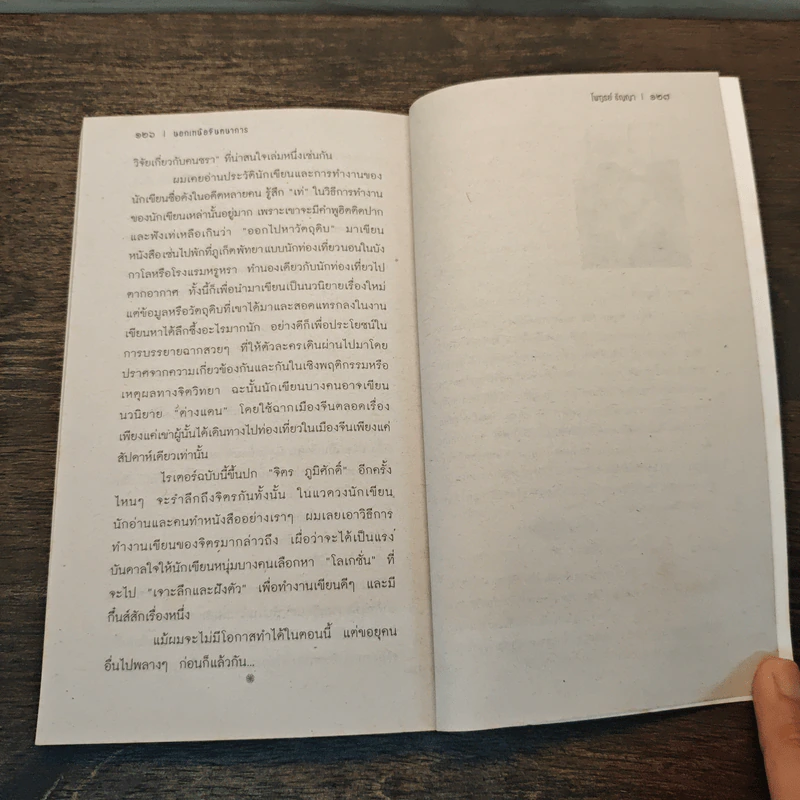 ๑๒๖ | นอกเหนือจินตนาการ
วิจัยเกี่ยวกับคนชรา" ที่น่าสนใจเล่มหนึ่งเช่นกัน
ผมเคยอ่านประวัตินักเขียนและการทำงานของ
นักเขียนชื่อดังในอดีตหลายคน รู้สึก "เท่" ในวิธีการทำงาน
ของนักเขียนเหล่านั้นอยู่มาก เพราะเขาจะมีคำพูฮิตติดปาก
และฟังเท่เหลือเกินว่า "ออกไปหาวัตถุดิบ" มาเขียน
หนังสือเช่นไปพักที่ภูเก็ตพัทยาแบบนักท่องเที่ยวนอนในบัง
กาโลหรือโรงแรมหรูหรา ทำนองเดียวกับนักท่องเที่ยวไป
ตากอากาศ ทั้งนี้ก็เพื่อนำมาเขียนเป็นนวนิยายเรื่องใหม่
แต่ข้อมูลหรือวัตถุดิบที่เขาได้มาและสอดแทรกลงในงาน
เขียนหาได้ลึกซึ้งอะไรมากนัก อย่างดีก็เพื่อประโยชน์ใน
การบรรยายฉากสวยๆ ที่ให้ตัวละครเดินผ่านไปมาโดย
ปราศจากความเกี่ยวข้องกันและกันในเชิงพฤติกรรมหรือ
เหตุผลทางจิตวิทยา ฉะนั้นนักเขียนบางคนอาจเขียน
นวนิยาย "ต่างแดน" โดยใช้ฉากเมืองจีนตลอดเรื่อง
เพียงแค่เขาผู้นั้นได้เดินทางไปท่องเที่ยวในเมืองจีนเพียงแค่
สัปดาห์เดียวเท่านั้น
ไรเตอร์ฉบับนี้ขึ้นปก "จิตร ภูมิศักดิ์" อีกครั้ง
ไหนๆ จะรำลึกถึงจิตรกันทั้งนั้น ในแวดวงนักเขียน
นักอ่านและคนทำหนังสืออย่างเราๆ ผมเลยเอาวิธีการ
ทำงานเขียนของจิตรมากล่าวถึง เผื่อว่าจะได้เป็นแรง
บันดาลใจให้นักเขียนหนุ่มบางคนเลือกหา "โลเกชั่น" ที่
จะไป "เจาะลึกและฝังตัว" เพื่อทำงานเขียนดีๆ และมี
กึ๋นส์สักเรื่องหนึ่ง
แม้ผมจะไม่มีโอกาสทำได้ในตอนนี้ แต่ขอยุคน
อื่นไปพลางๆ ก่อนก็แล้วกัน...
ไพฑูรย์ ธัญญา | ๑๒๗